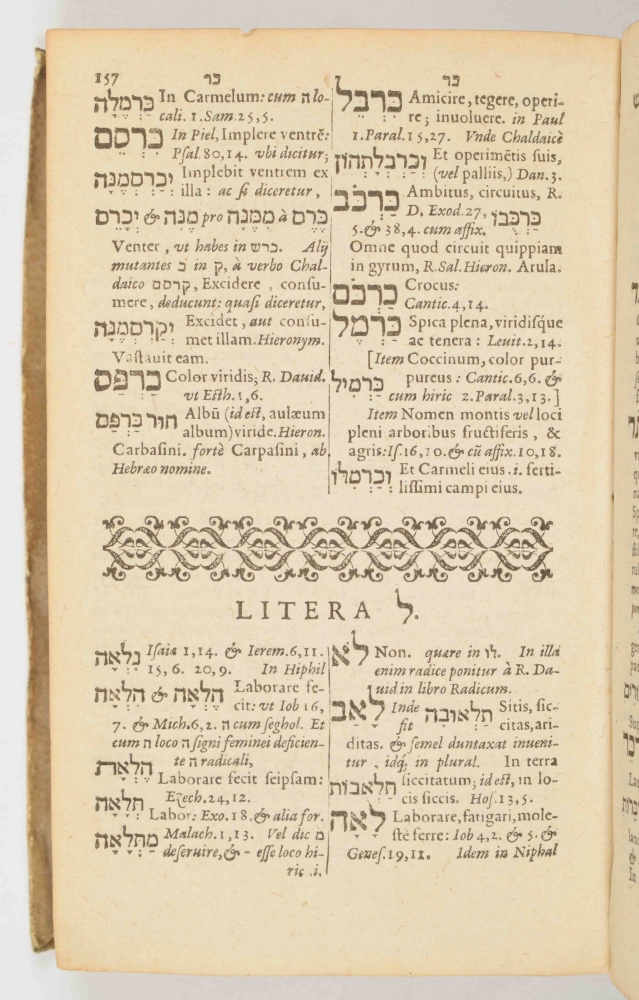 157 כר כר
כַּרְבֵּל Amicire, tegere, operi-
re; inuoluere. in Paul
1.Paral.15,27. Vnde Chaldaicè
וְכַרְבְּלָתְהוֹן Et operimētis suis,
(vel palliis,) Dan.3.
כַּרְכֹּב Ambitus, circuitus, R.
D. Exod.27, כַּרְכֻּבּוֹ
5. & 38,4. cum affix.
Omne quod circuit quippiam
in gyrum, R.Sal.Hieron. Arula.
כַּרְכֹּם Crocus:
Cantic.4,14.
כַּרְמֶל Spica plena, viridisque
ac tenera: Leuit.2,14.
[Item Coccinum, color pur-
כַּרְמִיל pureus: Cantic.6,6. &
cum hiric 2.Paral.3,13.]
Item Nomen montis vel loci
pleni arboribus fructiferis, &
agris:Is.16,10.& cū affix.10,18.
וְכַרְמִלּוֹ Et Carmeli eius .i. ferti-
lissimi campi eius.
כַּרְמֶלָה In Carmelum: cum ה lo-
cali. 1.Sam 25,5.
כִּרְסֵם In Piel, Implere ventrē:
Psal.80,14. vbi dicitur;
יְכַרְסְמֶנָּה Implebit ventrem ex
illa: ac si diceretur,
יְכָרֵס & מֶנָּה pro מִמֶּנָּה à כָּרַס
Venter, vt habes in כרש. Alij
mutantes כ in ק, à verbo Chal-
daico קרסם, Excidere, consu-
mere, deducunt: quasi diceretur,
יְקַרְסְמֶנָּה Excidet, aut consu-
met illam. Hieronym.
Vastauit eam.
כַּרְפַּס Color viridis; R. Dauid.
vt Esth.1,6.
חוּר כַּרְפַּס Albū (id est, aulæum
album) viride. Hieron.
Carbasini. fortè Carpasini, ab
Hebræo nomine.
LITERA ל.
לֹא Non. quære in לו. In illa
enim radice ponitur à R. Da-
uid in libro Radicum.
לָאַב Inde תַּלְאוּבָה Sitis, sic-
fit citas, ari-
ditas. & semel duntaxat inueni-
tur, idq; in plural. In terra
תַּלְאֻבוֹת siccitatum; id est, in lo-
cis siccis. Hos.13,5.
לָאָה Laborare, fatigari, mole-
stè ferre: Iob 4,2. & 5. &
Genes.19,11. Idem in Niphal
נִלְאָה Isaiæ 1,14. & Ierem.6,11.
15,6. 20,9. In Hiphil
הֶלְאָה & הֶלְאָה Laborare fe-
cit: vt Iob 16,
7. & Mich.6,2. ה cum seghol. Et
cum ה loco ה signi feminei deficien-
te ה radicali,
הֶלְאָת Laborare fecit seipsam:
Ezech.24,12.
תְּלָאָה Labor: Exo.18.& alia for.
מַתְּלָאָה Malach.1,13. Vel dic מ
deseruire, & - esse loco hi-
ric .i.